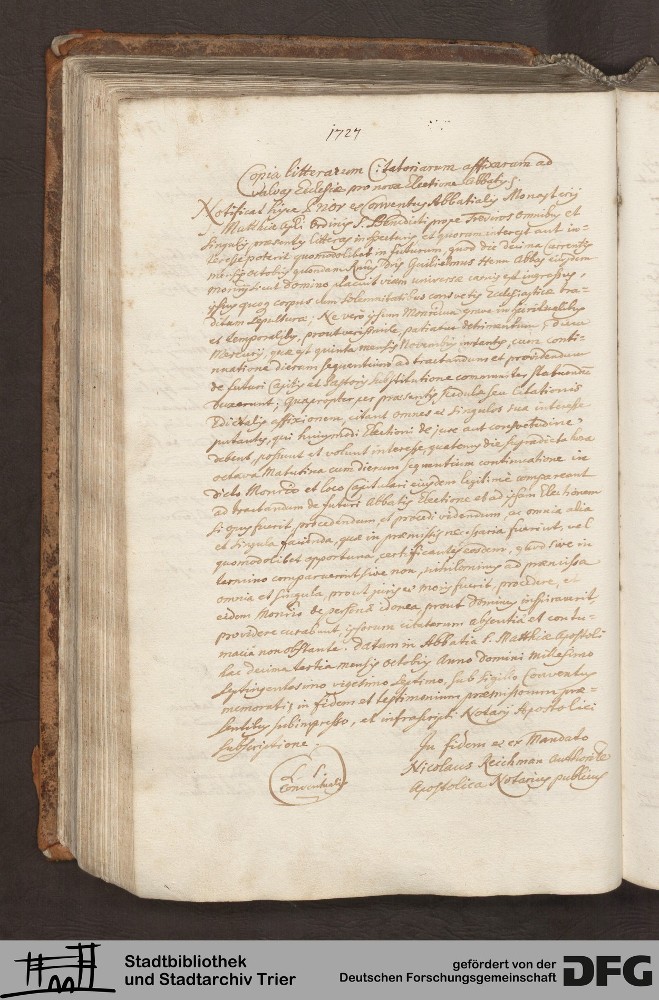 1727
Copia litterarum Citatoriarum affixarum ad
valvas Ecclesiæ pro nova Electione Abbatis
Notificat Prior et Conventus Abbatialis Monasterij
S. Matthiæ Apli Ordinis S. Benedicti prope Treviros omnibus et
singulis præsentes litteras inspecturis et quorum interest aut in-
teresse poterit quomodolibet in futurum, quod die decima currentis
mensis octobris quondam Rmus Dnus Guilielmus Henn Abbas ejusdem
Monasterij in Domino placuit viam universæ carnis est ingressus,
ipsius quoq corpus cum solemnitatibus consvetis Ecclesiasticæ tra-
ditum sepulturæ; Ne vero ipsum Monrium grave in spiritualibus
et temporalibus, prout verisimile, patiatur detrimentum, diem
Mercurij, quæ est quinta mensis Novembris instantis, cum conti-
nuatione dierum sequentium ad tractandum et providendum
de futuri Capitis et Pastoris substitutione communiter statuendum
duxerunt; Quapropter per præsentis schedulæ seu Citationis
Edictalis affixionem, citant omnes et singulos sua interesse
putantes, qui huiusmodi Electioni de jure aut consvetudine,
debent, possunt et volunt interesse, quatenus die supradicta hora
octava Matutina cum dierum sequentium continuatione in
dicto Monrio et loco capitulari eiusdem legitime compareant
ad tractandum de futuri Abbatis Electione et ad ipsam Electionem
si opus fuerit procedendum et procedi videndum, ac omnia alia
et singula facienda, quæ in præmissis necessaria fuerint, vel
quomodolibet opportuna, certificantes eosdem, quod sive in
termino comparuerint sive non, nihilominus ad præmissa
omnia et singula, prout juris et moris fuerit, procedere, et
eidem Monrio de persona idonea prout Dominus inspiraverit,
providere curabunt, ipsorum citatorum absentia et contu-
macia non obstante. Datum in Abbatia S. Matthiæ Apostoli
hac decima tertia mensis octobris Anno Domini millesimo
septingentesimo vigesimo septimo, sub sigillo Conventus
memorati, in fidem et testimonium præmissorum præ-
sentibus subimpresso, et infrascripti Notarij Apostolici
subscriptione.
In fidem et ex Mandato
Nicolaus Reichman authorite
Apostolica Notarius publicus
L. S.
Conventualis
Stadtbibliothek
und Stadtarchiv Trier
gefördert von der
Deutschen Forschungsgemeinschaft
DFG